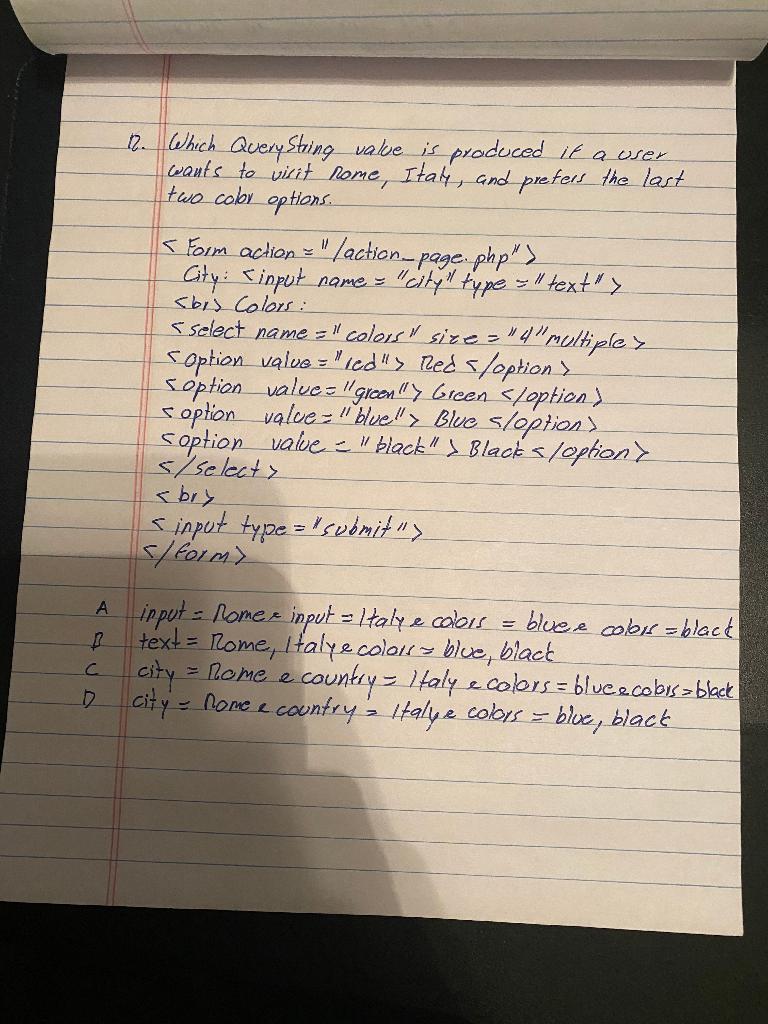 12. Which QueryString value is produced if a user
wants to visit Rome, Italy, and prefers the last
two color options.
< Form action = "/action_page.php">
City: <input name = "city" type = "text">
<br> Colors:
<select name = "colors" size = "4" multiple>
<option value = "red"> Red </option>
<option value = "green"> Green </option>
<option value = "blue"> Blue </option>
<option value = "black"> Black </option>
</select>
<br>
<input type = "submit">
</form>
A input = Rome & input = Italy & colors = blue & colors = black
B text = Rome, Italy & colors = blue, black
C city = Rome & country = Italy & colors = blue & colors = black
D city = Rome & country = Italy & colors = blue, black